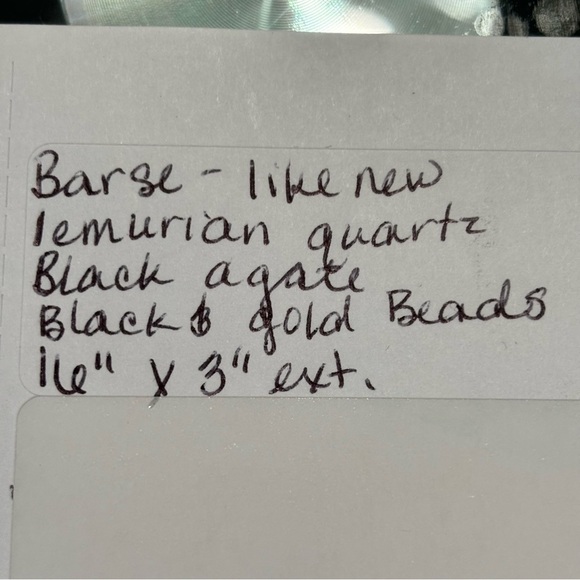 Barse - like new
lemurian quartz
Black agate
Black & gold Beads
16" x 3" ext.